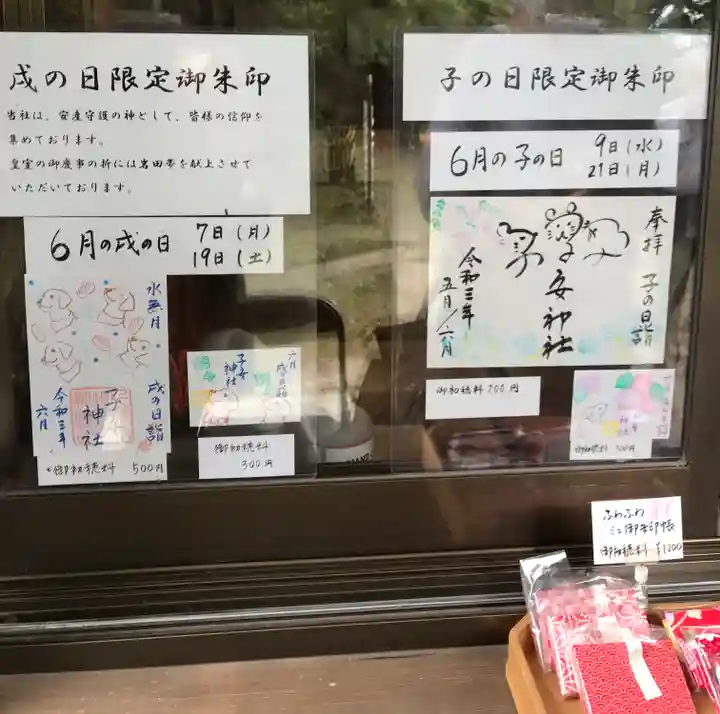 戌の日限定御朱印
当社は、安産守護の神として、皆様の信仰を
集めております。
皇室の御慶事の折には岩田帯を献上させて
いただいております。
6月の戌の日
7日(月)
19日(土)
水無月
戌の日詣
子安
神社
令和三年
六月
御初穂料 500円
六月
戌の日詣
子安
神社
御初穂料
300円
子の日限定御朱印
6月の子の日
9日(水)
21日(月)
奉拝
子の日詣
子安神社
令和三年
五月/六月
御初穂料700円
御初穂料
ふわふわ
ミニ御朱印帳
御初穂料 ¥1200